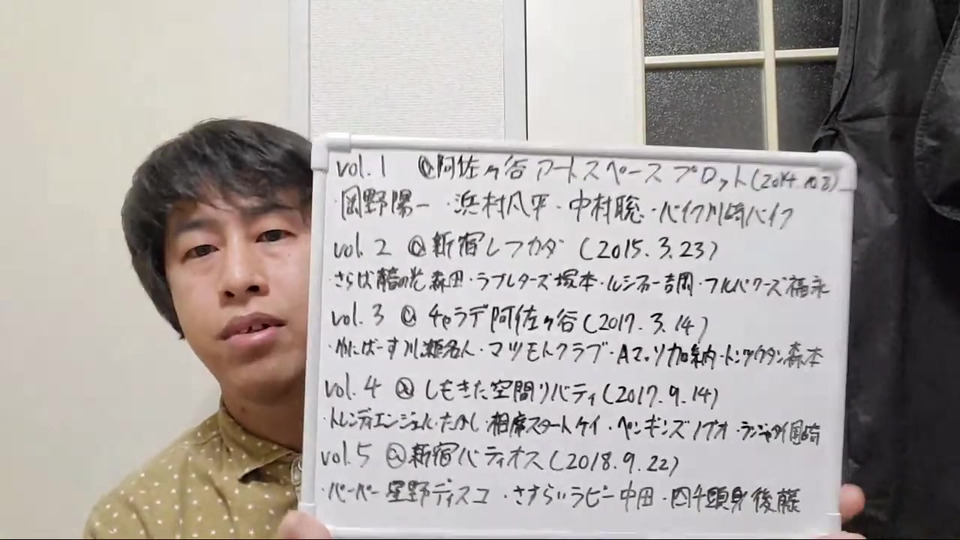 vol.1 @阿佐ヶ谷アートスペースプロット(2014.10.8)
・岡野陽一・浜村凡平・中村聡・バイク川崎バイク
vol.2 @新宿レフカダ(2015.3.23)
・さらば青春の光 森田・ラブレターズ塚本・ルシファー吉岡・フルパワーズ福永
vol.3 @チャラデ阿佐ヶ谷(2017.3.14)
・ゆにばーす川瀬名人・マツモトクラブ・Aマッソ加納・トンツカタン森本
vol.4 @しもきた空間リバティ(2017.9.14)
・トレンディエンジェルたかし・相席スタートケイ・ペンギンズノブオ・ランジャタイ国崎
vol.5 @新宿バティオス(2018.9.22)
・パーパー星野ディスコ・さすらいラビー中田・四千頭身後藤